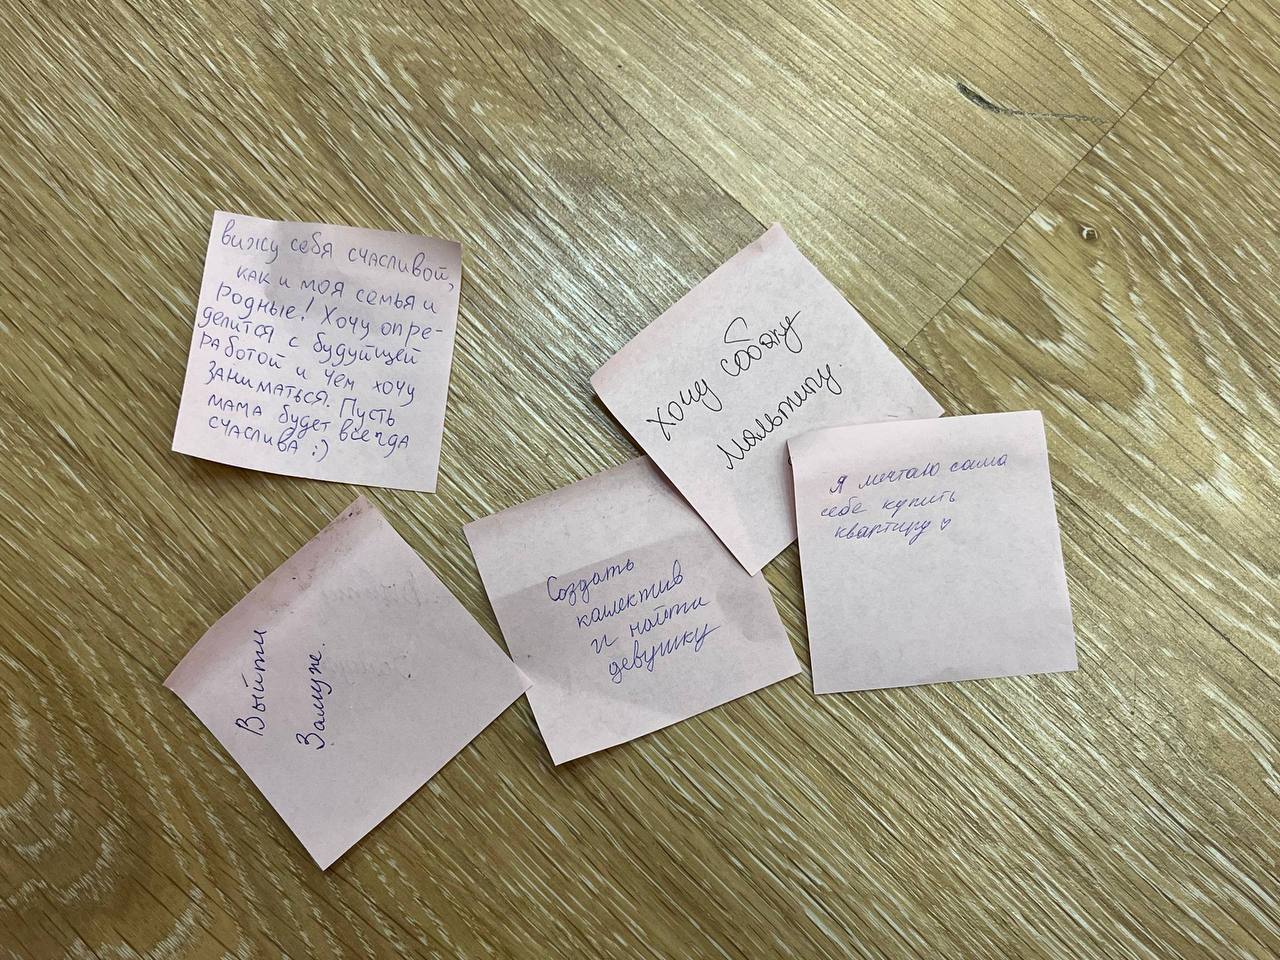 вижу себя счасливой,
как и моя семья и
родные! Хочу опре-
делится с будуйщей
работой и чем хочу
заниматься. Пусть
мама будет всегда
счаслива :)
Хочу собаку
Мальтипу.
Я мечтаю сама
себе купить
квартиру ♡
Создать
коллектив
и найти
девушку
Выйти
Замуж.